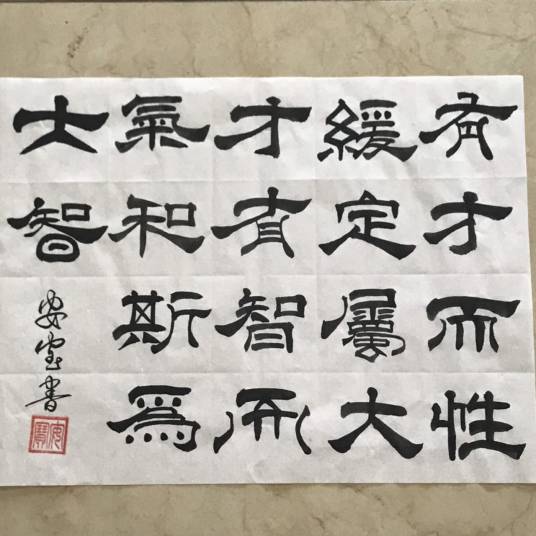 有才而性
緩定屬大
才有智而
氣和斯為
大智